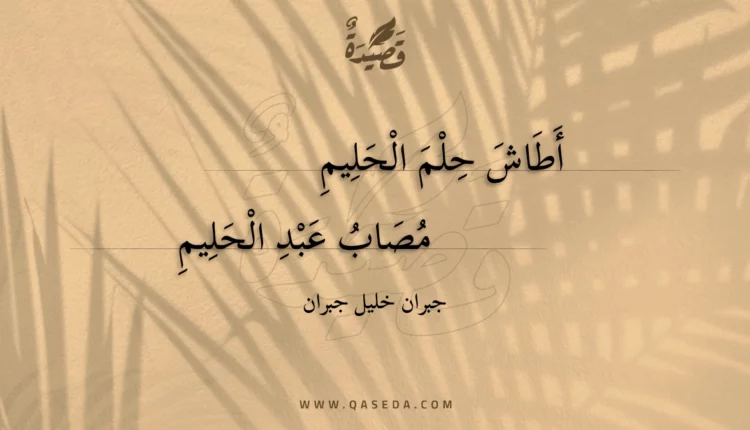 قَصِيدَةٌ
أَطَاشَ حِلْمَ الْحَلِيمِ
مُصَابُ عَبْدِ الْحَلِيمِ
جبران خليل جبران
WWW.QASEDA.COM